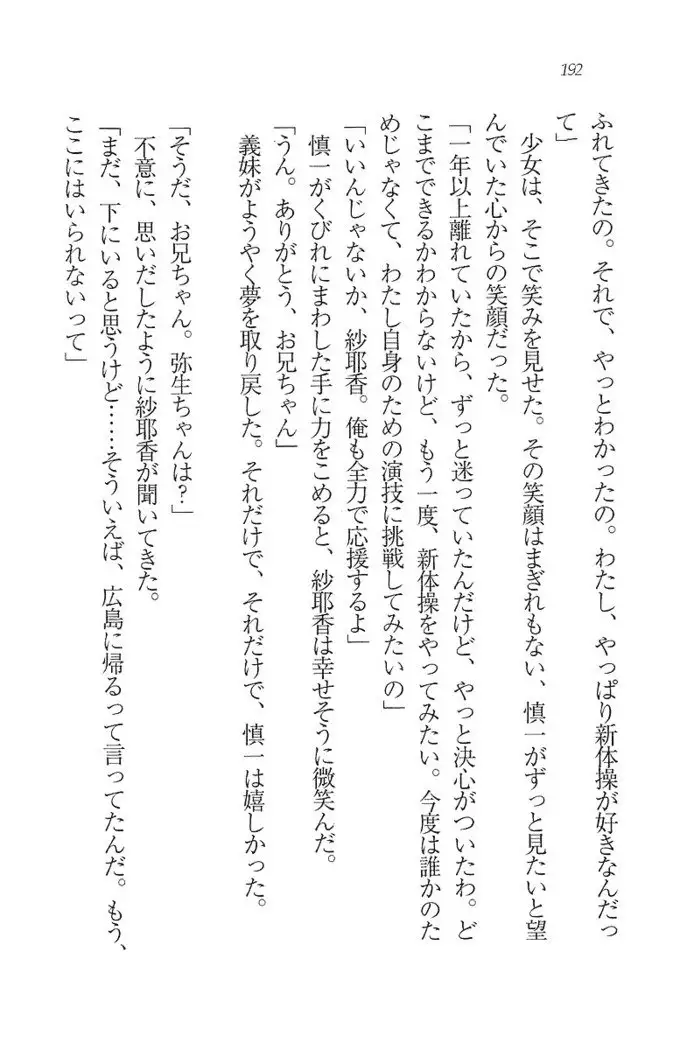 192
ふれてきたの。それで、やっとわかったの。わたし、やっぱり新体操が好きなんだっ
て」
　少女は、そこで笑みを見せた。その笑顔はまぎれもない、慎一がずっと見たいと望
んでいた心からの笑顔だった。
「一年以上離れていたから、ずっと迷っていたんだけど、やっと決心がついたわ。ど
こまでできるかわからないけど、もう一度、新体操をやってみたい。今度は誰かのた
めじゃなくて、わたし自身のための演技に挑戦してみたいの」
「いいんじゃないか、紗耶香。俺も全力で応援するよ」
　慎一がくびれにまわした手に力をこめると、紗耶香は幸せそうに微笑んだ。
「うん。ありがとう、お兄ちゃん」
　義妹がようやく夢を取り戻した。それだけで、それだけで、慎一は嬉しかった。
「そうだ、お兄ちゃん。弥生ちゃんは？」
　不意に、思いだしたように紗耶香が聞いてきた。
「まだ、下にいると思うけど……そういえば、広島に帰るって言ってたんだ。もう、
ここにはいられないって」